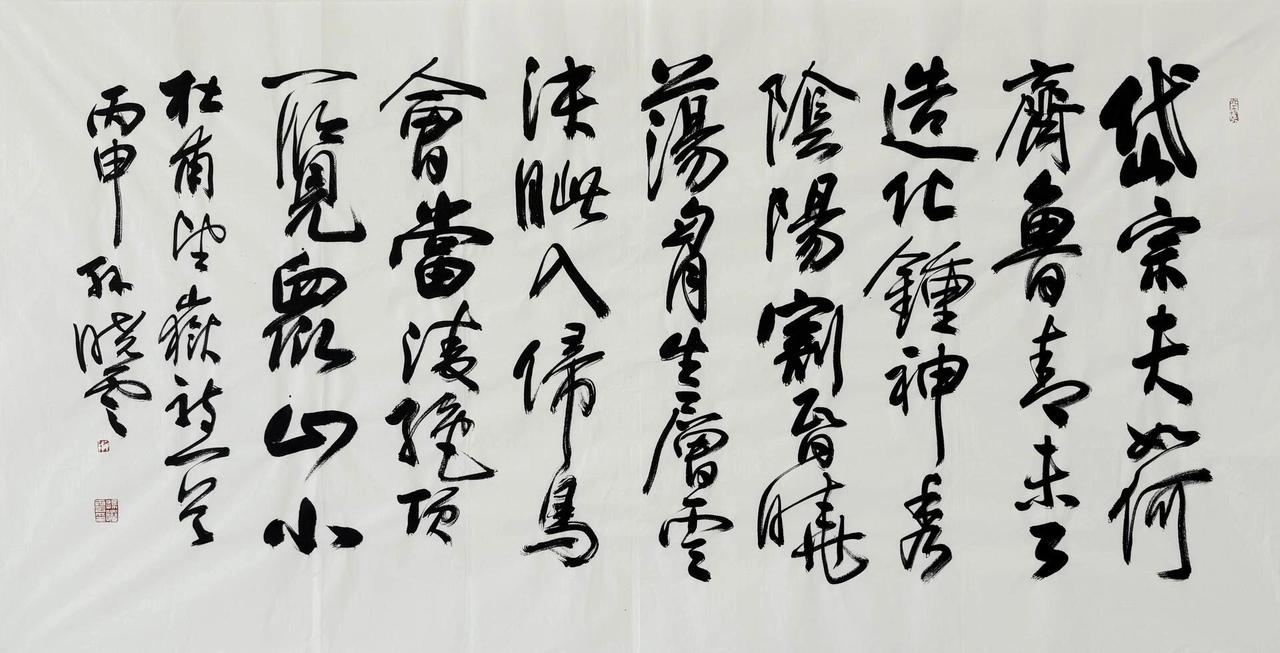 岱宗夫如何
齊魯青未了
造化鍾神秀
陰陽割昏曉
蕩胷生層雲
決眦入歸鳥
會當淩絕頂
一覽衆山小
杜甫望嶽詩一首
丙申 孫曉雲